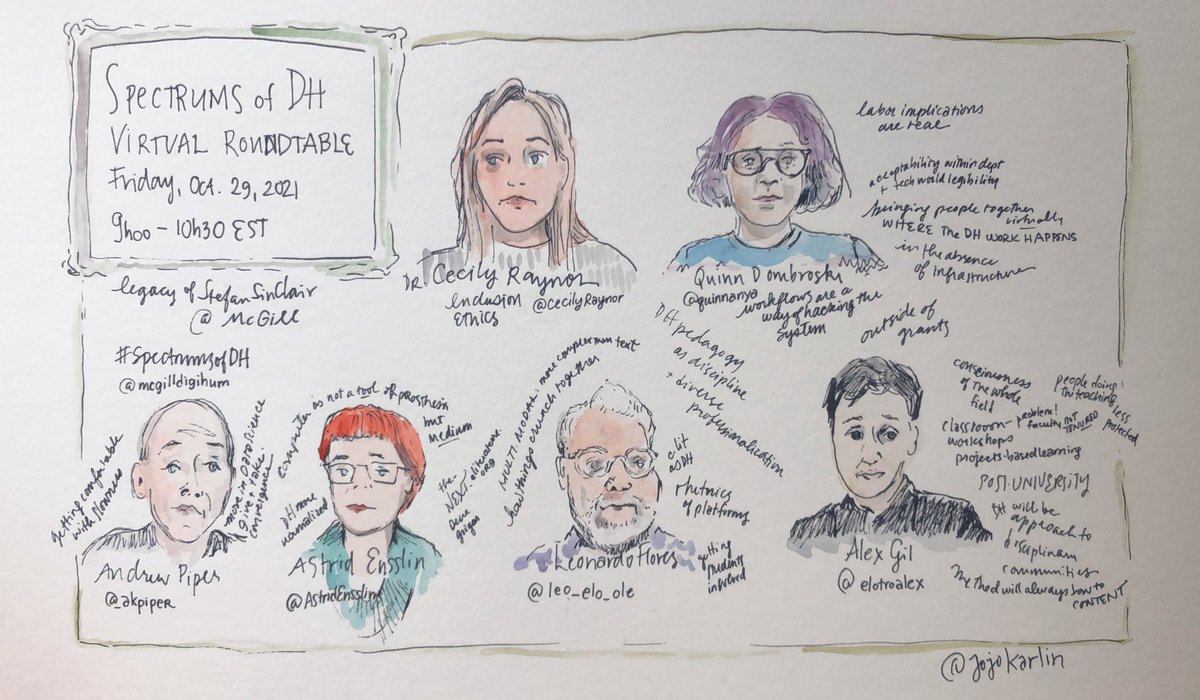 SPECTRUMS of DH
VIRTUAL ROUNDTABLE
Friday, Oct. 29, 2021
9h00 – 10h30 EST
legacy of Stefan Sinclair
@ McGill
#SpectrumsofDH
@mcgilldigihum
Dr. Cecily Raynor
Inclusion
Ethics
@CecilyRaynor
Quinn Dombroski
@quinnanya
workflows are a
way of hacking the
system
labor implications
are real
acceptability within dept
+ tech world legibility
bringing people together
virtually
WHERE The DH WORK HAPPENS
in the absence
of infrastructure
outside of
grants
DH pedagogy
as discipline
+ diverse
professionalization
getting comfortable
with Newness
more in DATA Science
give + take.
convergence
Andrew Piper
@_akpiper
computer as not a tool of prosthesis
but
medium
DH more
normalized
the
NEXT. eliterature.
org
Dene
Grigar
Astrid Ensslin
@AstridEnsslin
MULTI-MODAL more complex than text
how things crunch together
e-lit
as DH
rhetorics
of platforms
getting
students
involved
Leonardo Flores
@leo_elo_ole
consciousness
of the whole
field
people doing
the teaching
less
protected
problem!
faculty NOT
TENURED
classroom-
workshops
projects-based learning
POST-UNIVERSITY
DH will be
approach to
disciplinary
communities
Method will always bow to
CONTENT
Alex Gil
@elotroalex
@jojokarlin